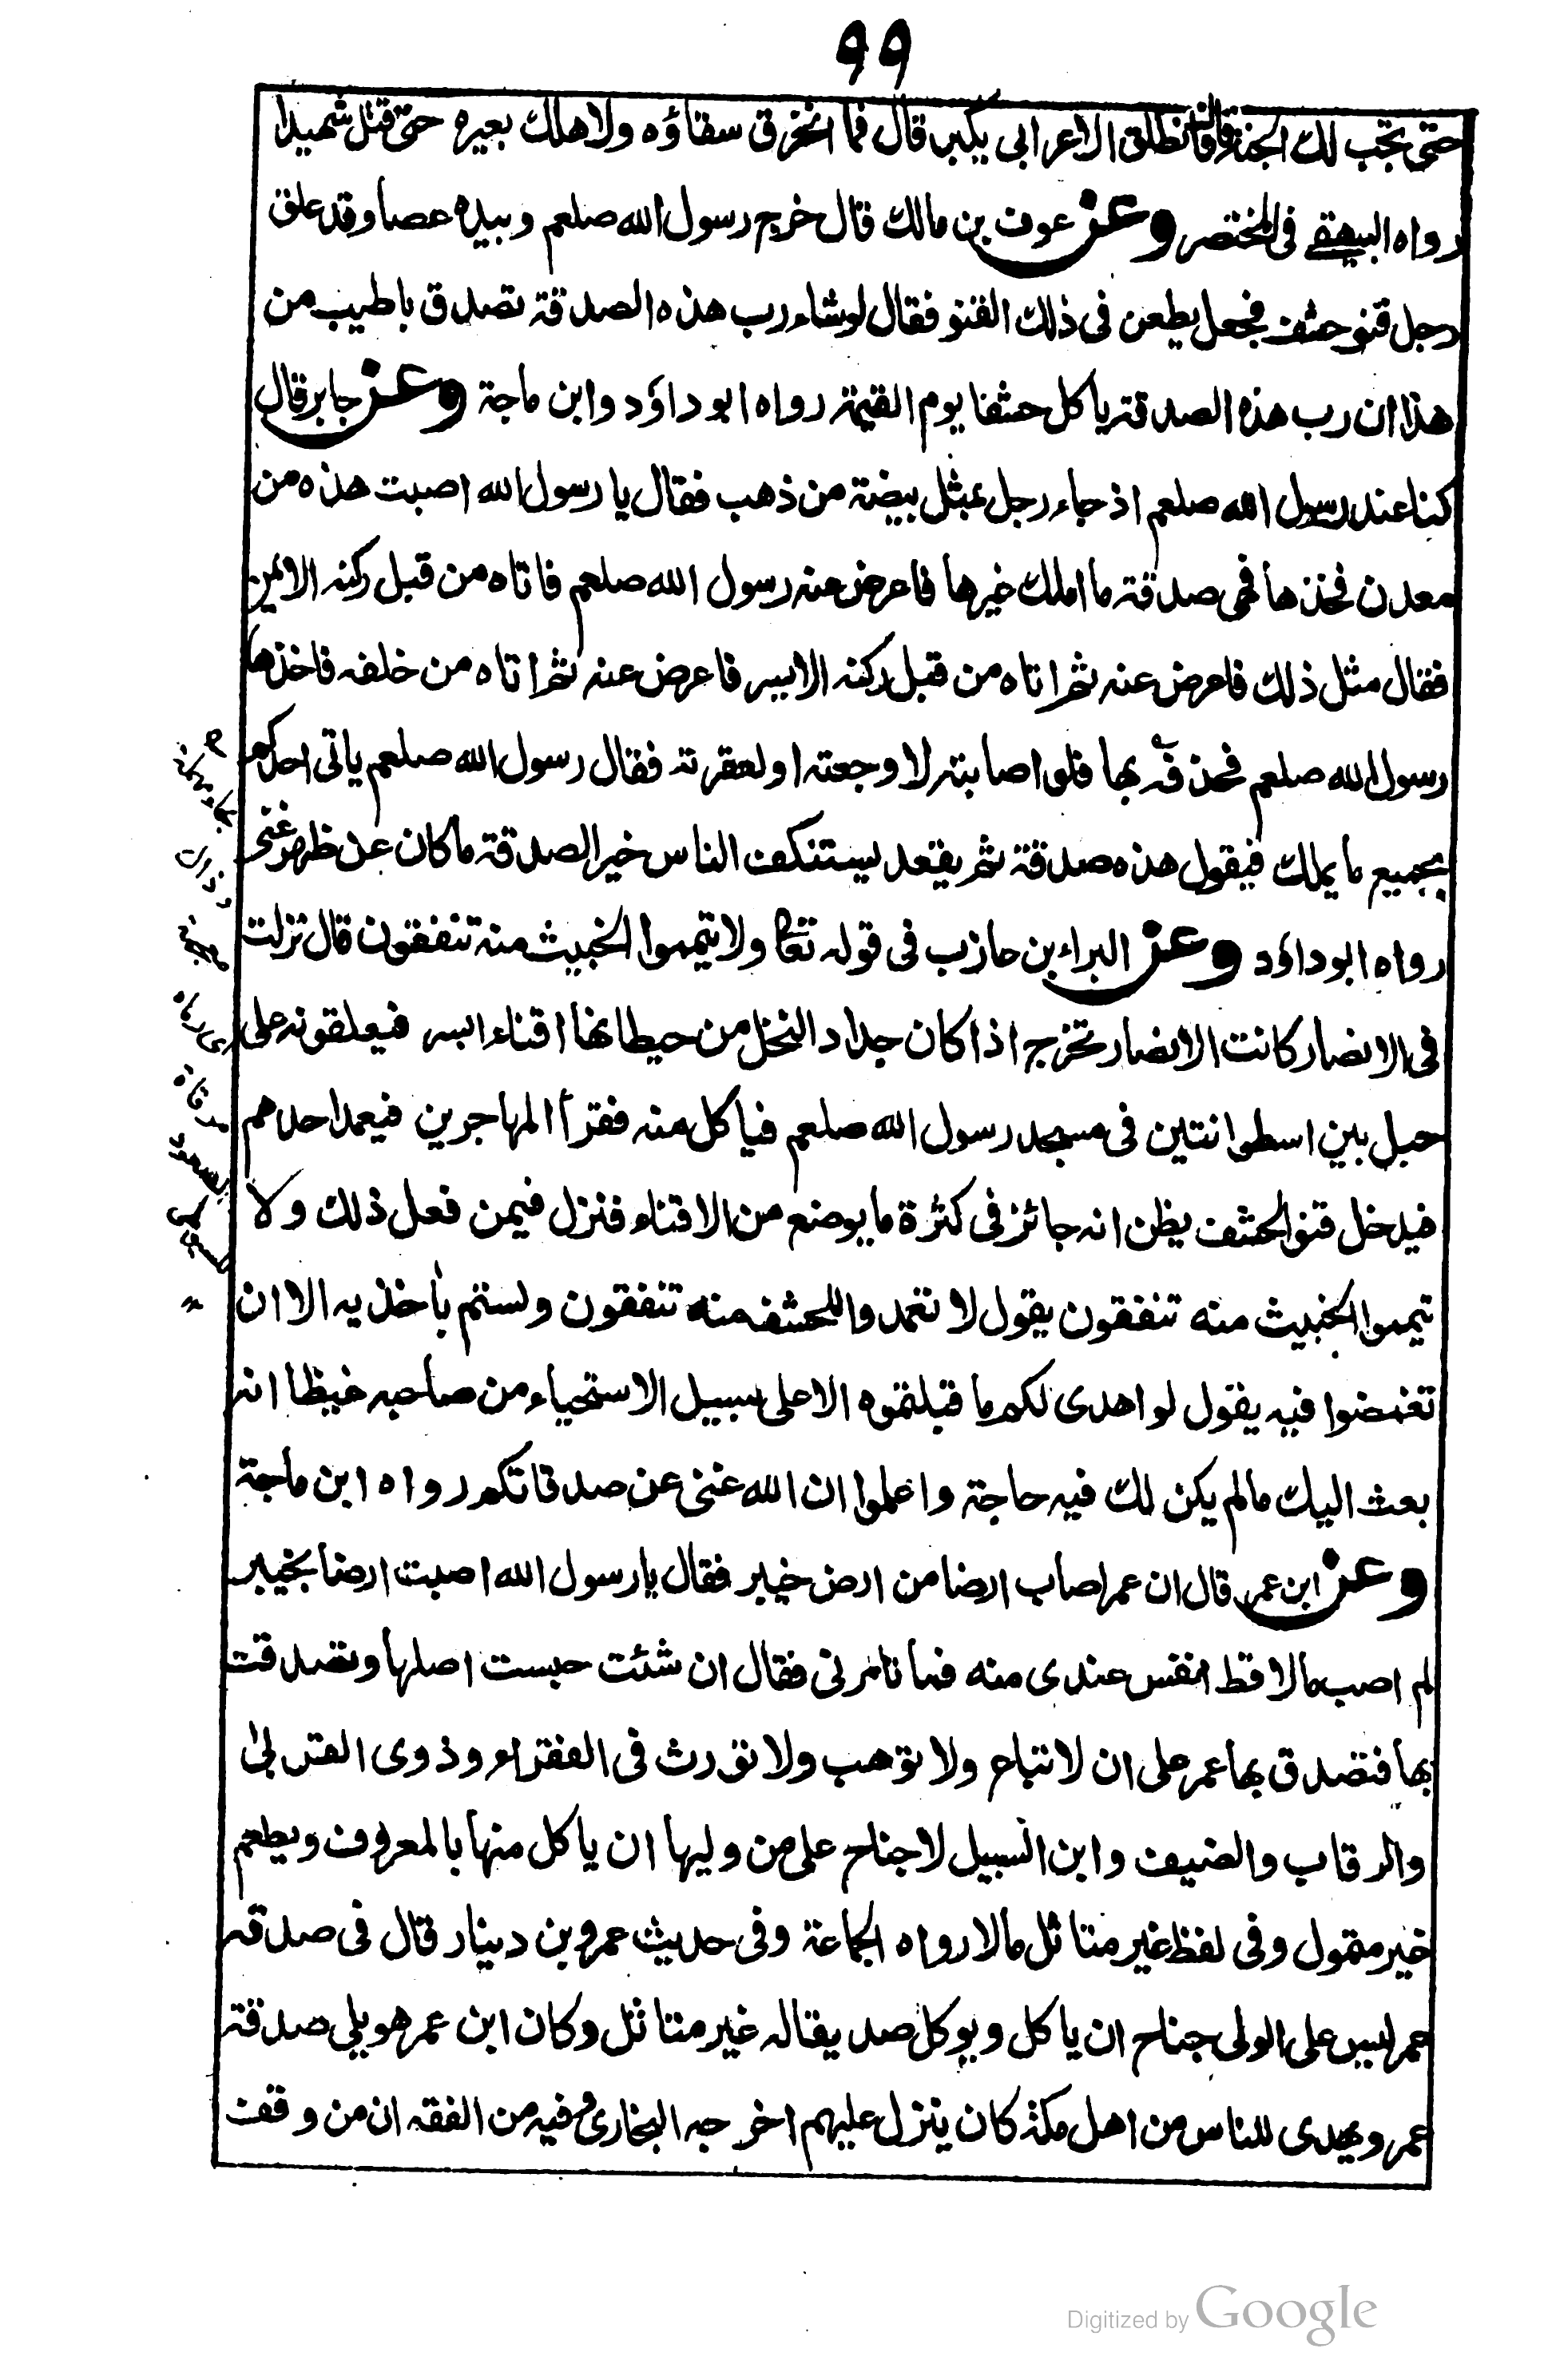 ٩٩
حتى تجب لك الجنة قال فانطلق الاعرابي يكبر قال فما انخرق سقاؤه ولا هلك بعيره حتى قتل شهيدا
رواه البيهقي في المختصر وعن عوف بن مالك قال خرج رسول الله صلعم وبيده عصا وقد علق
رجل قنو حشف فجعل يطعن في ذلك القنو فقال لو شاء رب هذه الصدقة تصدق باطيب من
هذا ان رب هذه الصدقة ياكل حشفا يوم القيمة رواه ابو داؤد وابن ماجة وعن جابر قال
كنا عند رسول الله صلعم اذ جاء رجل بمثل بيضة من ذهب فقال يا رسول الله اصبت هذه من
معدن فخذها فهى صدقة ما املك غيرها فاعرض عنه رسول الله صلعم فاتاه من قبل ركنه الايمن
فقال مثل ذلك فاعرض عنه ثم اتاه من قبل ركنه الايسر فاعرض عنه ثم اتاه من خلفه فاخذها
رسول الله صلعم فحذفه بها فلو اصابته لاوجعته او لعقرته فقال رسول الله صلعم ياتى احدكم
بجميع ما يملك فيقول هذه صدقة ثم يقعد يستنكف الناس خير الصدقة ما كان عن ظهر غنى
رواه ابو داؤد وعن البراء بن عازب في قوله تعا ولا تيمموا الخبيث منه تنفقون قال نزلت
في الانصار كانت الانصار تخرج اذا كان جداد النخل من حيطانها اقناء البسر فيعلقونه على
حبل بين اسطوانتين في مسجد رسول الله صلعم فياكل منه فقرأ المهاجرين فيعمد احدهم
فيدخل قنو الحشف يظن انه جائز في كثرة ما يوضع من الاقناء فنزل فيمن فعل ذلك ولا
تيمموا الخبيث منه تنفقون يقول لا تعمدوا للحشف منه تنفقون ولستم بأخذيه الا ان
تغمضوا فيه يقول لو اهدى لكم ما قبلتموه الا على سبيل الاستحياء من صاحبه غيظا انه
بعث اليك ما لم يكن لك فيه حاجة واعلموا ان الله غنى عن صدقاتكم رواه ابن ماجة
وعن ابن عمر قال ان عمر اصاب ارضا من ارض خيبر فقال يا رسول الله اصبت ارضا بخيبر
لم اصب مالا قط انفس عندى منه فما تامرنى فقال ان شئت حبست اصلها وتصدقت
بها فتصدق بها عمر على ان لا تباع ولا توهب ولا تورث في الفقراء وذوى القربى
والرقاب والضيف وابن السبيل لا جناح على من وليها ان ياكل منها بالمعروف ويطعم
غير متمول وفي لفظ غير متاثل مالا رواه الجماعة وفي حديث عمرو بن دينار قال في صدقة
عمر ليس على الولى جناح ان ياكل ويوكل صديقا له غير متاثل وكان ابن عمر هو يلي صدقة
عمر ويهدى للناس من اهل مكة كان ينزل عليهم اخرجه البخارى وفيه من الفقه ان من وقف
Digitized by Google